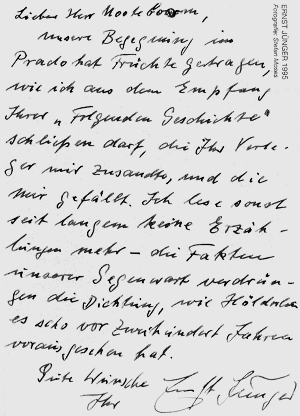 Lieber Herr Nooteboom,
unsere Begegnung im
Prado hat Früchte getragen,
wie ich aus dem Empfang
Ihrer „Folgenden Geschichte“
schließen darf, die Ihr Verle-
ger mir zusandte, und die
mir gefällt. Ich lese sonst
seit langem keine Erzäh-
lungen mehr – die Fakten
unserer Gegenwart verdrän-
gen die Dichtung, wie Hölderlin
es scho vor zweihundert Jahren
vorausgesehen hat.
Gute Wünsche
Ihr Ernst Jünger
ERNST JÜNGER 1995
Fotografie: Stefan Moses